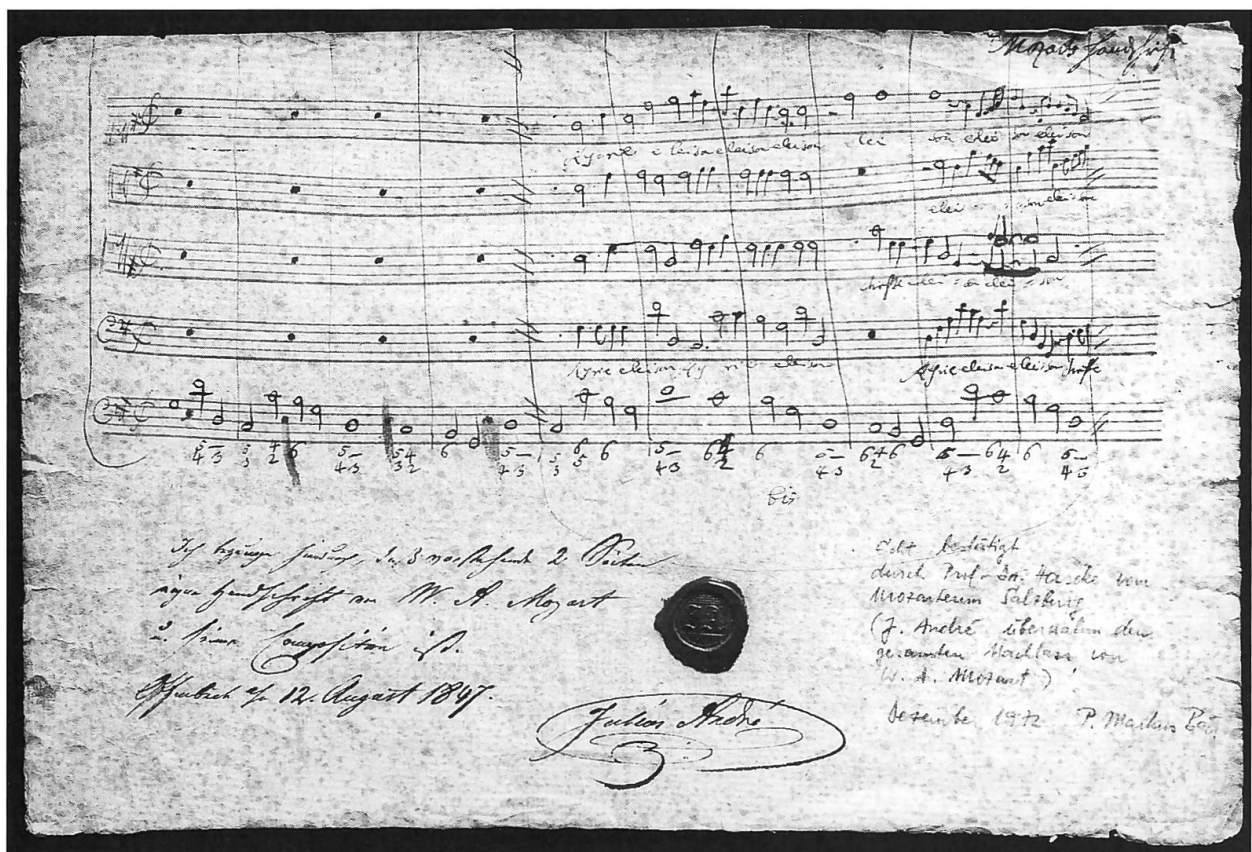 Mozarts Handschrift
Kyrie eleison eleison eleison elei son elei son eleison
elei son eleison
christe elei son elei son
Kyrie eleison Ky rie eleison Kyrie eleison eleison christe
6 6
6 6 6 6
bis
Ich bezeuge hierdurch, daß vorstehende 2 Seiten
eigne Handschrift von W. A. Mozart
u. seine Composition ist.
Offenbach a/m 12. August 1847.
Julius André
echt bestätigt
durch Prof. Dr. von
Mozarteum Salzburg
(J. André übernahm den
gesamten Nachlass von
W. A. Mozart)
Dezember 1972 P. Markus